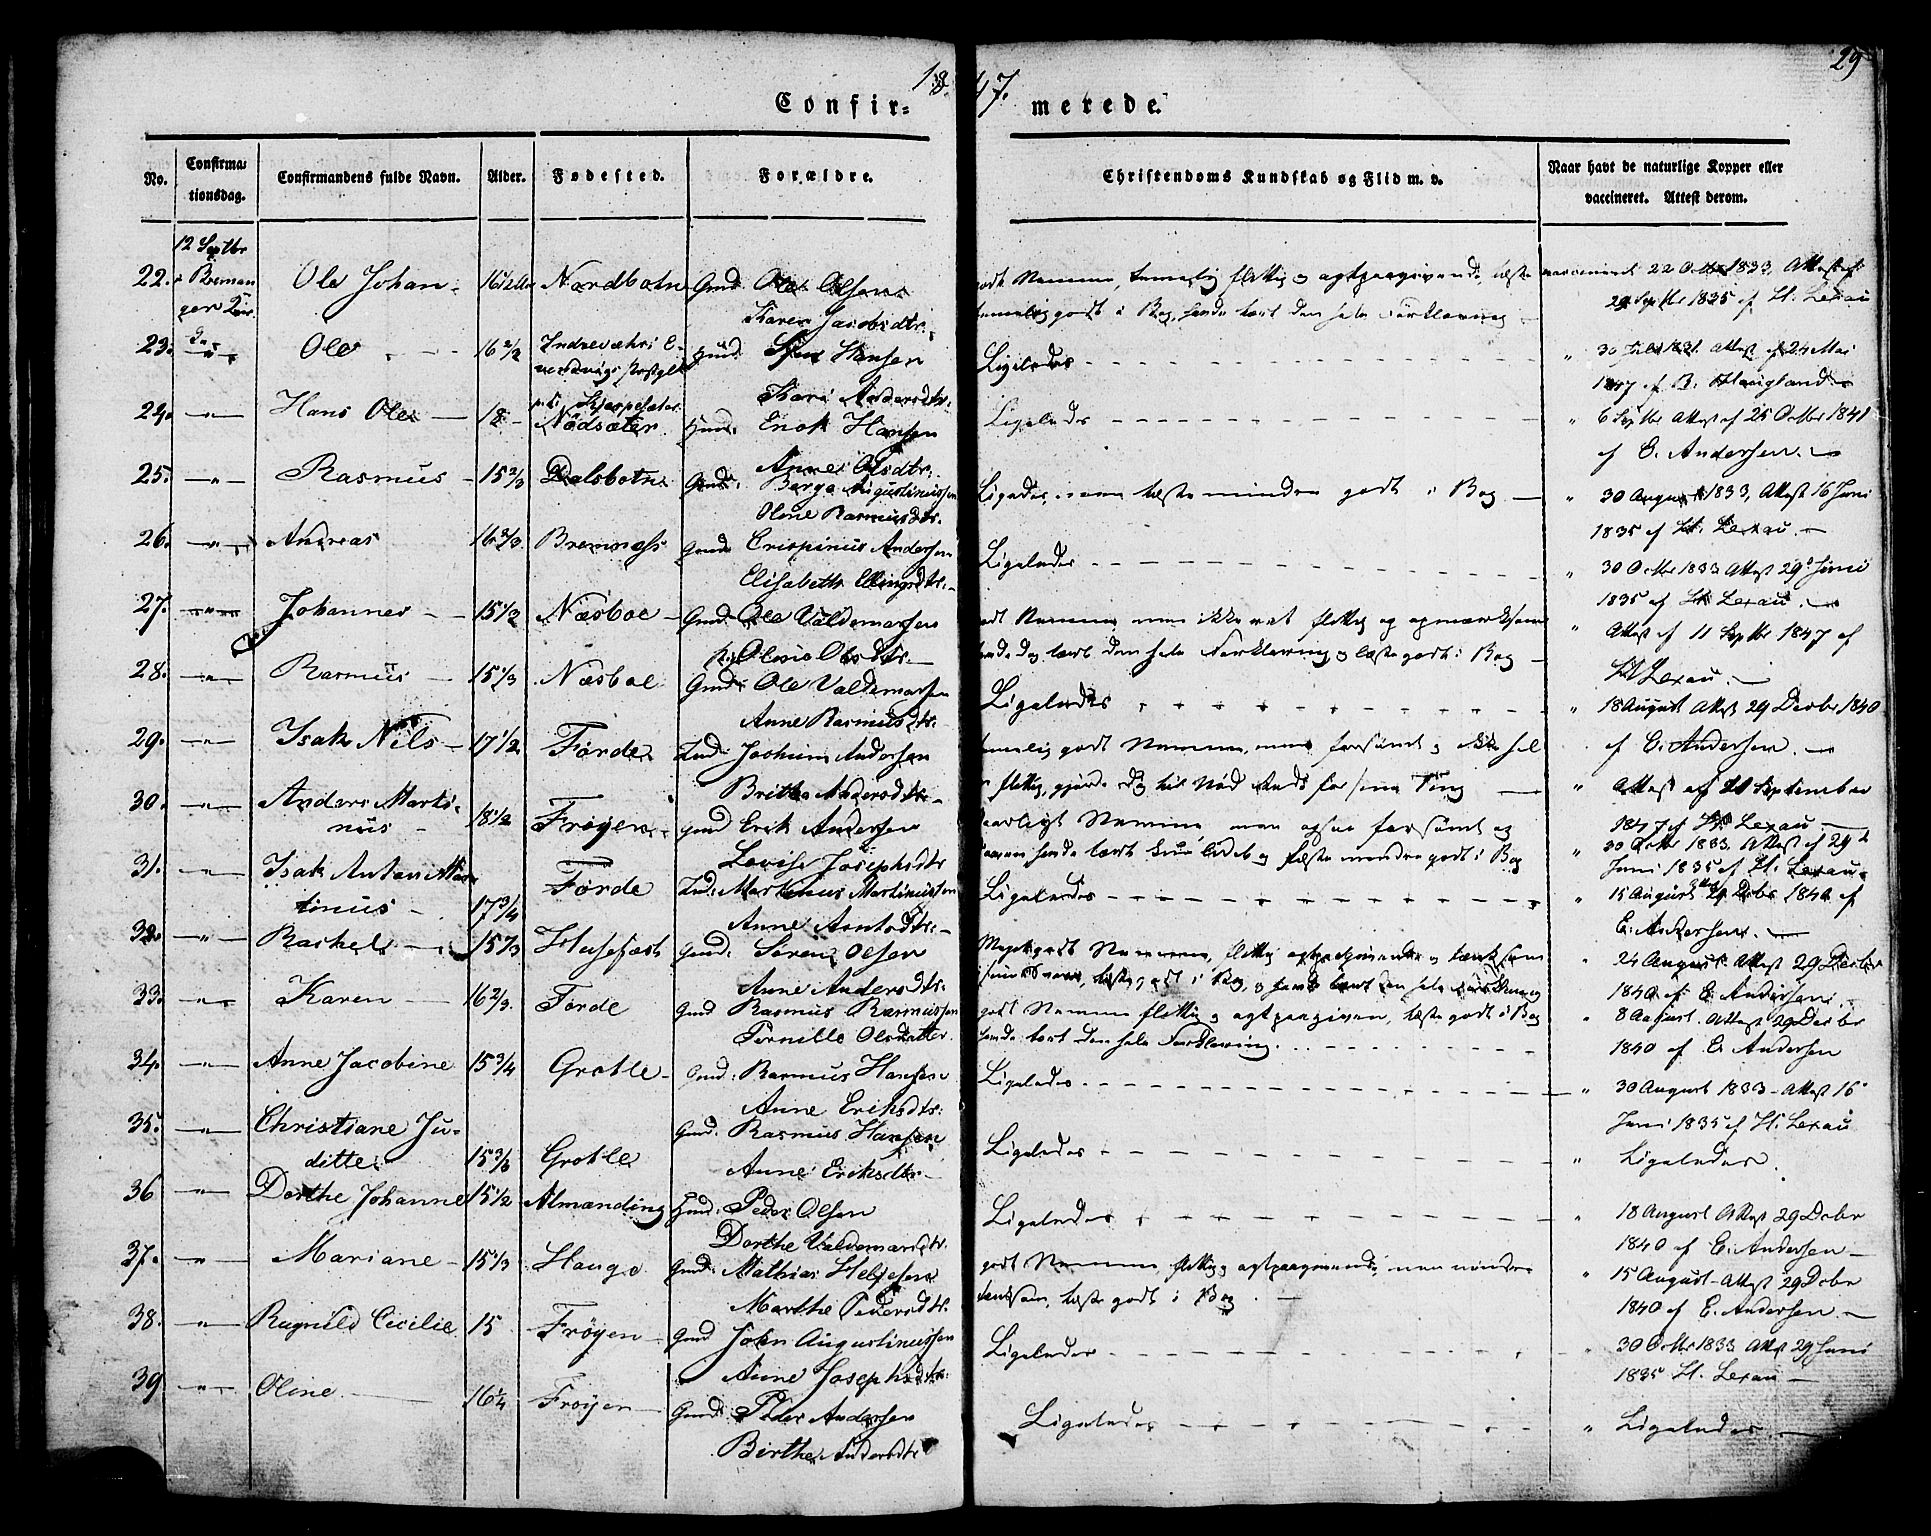 18 47.
29
Confir= merede.
No. Confirma=tionsdag. Confirmandens fulde Navn. Alder. Fødested. Forældre. Christendoms Kundskab og Flid m. v. Naar havt de naturlige Kopper eller vaccineret. Attest derom.
12 Septbr
22. Ole Johan 16 1/2 Nordbotn Gmd. Ole Olsen
Karen Jacobsdtr. godt Nemme, temmelig flittig og agtpaagivende, læste
temmelig godt i Bog, havde lært den hele Forklaring
vaccineret 22 Octbr 1833, Attest af
29 Septbr 1835 af H. Lexau
23. Ole 16 2/3 Hmd. Hansen
Kari Andersdtr. Ligeledes " 30 1831 Attest af 24 Mai
1847 af B. Haugland
24. Hans Ole 18 Nödsæter Hmd. Enok Hansen
Anne Olsdtr. Ligeledes " 6 Septbr Attest af 25 Octbr 1841
af E. Andersen.
25. Rasmus 15 2/3 Dalsbotn Gmd. Børge Augustinussen
Oline Rasmusdtr. Ligeledes, men læste mindre godt i Bog " 30 August 1833, Attest 16 Juni
1835 af H. Lexau.
26. Andreas 16 2/3 Bremnæss Gmd. Crispinus Andersen
Elisabeth Ellingsdtr. Ligeledes " 30 Octbr 1833 Attest 29 Juni
1835 af H. Lexau.
27. Johannes 15 1/3 Næsboe Gmd. Ole Valdemarsen
Oline Olsdtr. godt Nemme men ikke flittig og opmærksom
havde dog lært den hele Forklaring og læste godt i Bog
" Attest af 11 Septbr 1847 af
H Lexau.
28. Rasmus 15 1/3 Næsboe Gmd. Ole Valdemarsen
Anne Rasmusdtr. Ligeledes " 18 August Attest 29 Decbr 1840
af E. Andersen.
29. Isak Nils 17 1/2 Førde Ind. Jochum Andersen
Brithe Andersdtr. temmelig godt Nemme, men forsømt og ikke
flittig, gjorde dog
" Attest af 21 September
1847 af H. Lexau.
30. Anders Marti=
nus 18 1/2 Frøyen Gmd Erik Andersen
Lovise Josephsdtr daarligt Nemme, men ogsaa forsømt og
havde lært kun lidet og læste mindre godt i Bog
" 30 Octbr 1833 Attest af 29
Juni 1835 af H. Lexau.
31. Isak Anton Mar=
tinus 17 3/4 Førde Ind. Martinus Martinussen
Anne Ligeledes " 15 August 29 Decbr 1840 af
E. Andersen.
32. Rachel 15 2/3 Husefæst Gmd. Søren Olsen
Anne Andersdtr. Meget godt Nemme, flittig agtpaagivende og tænksom
læste godt i Bog, og havde lært den hele Forklaring
" 24 August Attest 29 Decbr
1840 af E. Andersen.
33. Karen 16 2/3 Førde Gmd Rasmus Rasmussen
Pernille Olsdatter godt Nemme flittig og agtpaagiven, læste godt i Bog
havde lært den hele Forklaring.
" 8 August. Attest 29 Decbr
1840 af E. Andersen
34. Anne Jacobine 15 3/4 Grotle Gmd. Rasmus Hansen
Anne Eriksdtr. Ligeledes " 30 August 1833 - Attest 16
Juni 1835 af H. Lexau
35. Christiane Ju=
ditte 15 3/4 Grotle Gmd. Rasmus Hansen
Anne Eriksdtr. Ligeledes " Ligeledes.
36 Dorthe Johanne 15 1/2 Almænding Hmd. Peder Olsen
Dorthe Valdemarsdtr. Ligeledes " 18 August Attest 29 Decbr
1840 af E. Andersen
37. Mariane 15 1/3 Hauge Gmd. Mathias Heljesen
Marthe Pedersdtr. godt Nemme, flittig og agtpaagivende, men mindre
tænksom, læste godt i Bog
" 15 August - Attest 29 Decbr
1840 af E. Andersen
38. Ragnild Cecilie 15 Frøyen Gmd John Augustinussen
Anne Josephsdtr. Ligeledes " 30 Octbr 1833 Attest 29 Juni
1835 H. Lexau
39 Oline 16 1/4 Frøyen Gmd. Peder Andersen
Birthe Andersdtr Ligeledes " Ligeledes